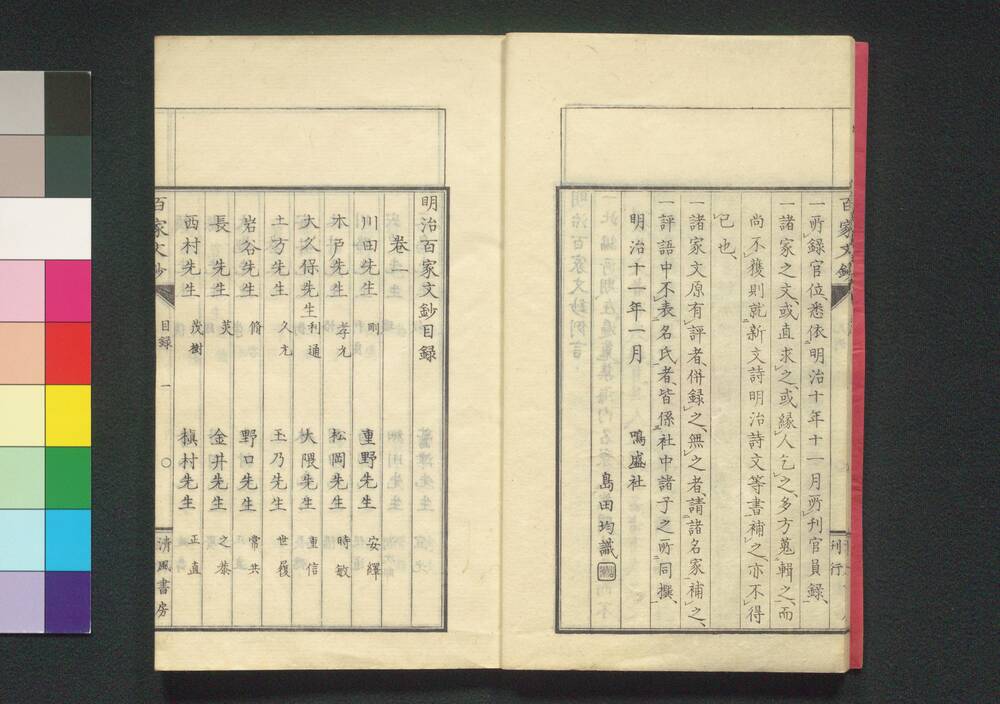 百家文鈔
刊行
一所錄官位悉依明治十年十一月所刊官員錄、
一諸家之文、或直求之、或緣人乞之、多方蒐輯之、而
尚不獲則就新文詩明治詩文等書補之、亦不得
已也、
一諸家文原有評者、併錄之、無之者、請諸名家補之、
一評語中不表名氏者、皆係社中諸子之所同撰、
明治十一年一月
鳴盛社
島田均識
明治百家文鈔目錄
卷一
川田先生 剛 重野先生 安繹
木戶先生 孝允 松岡先生 時敏
大久保先生 利通 大隈先生 重信
土方先生 久元 玉乃先生 世履
岩谷先生 脩 野口先生 常共
長 先生 炗 金井先生 之恭
西村先生 茂樹 槇村先生 正直
百家文鈔 目錄 一 〇 淸風書房